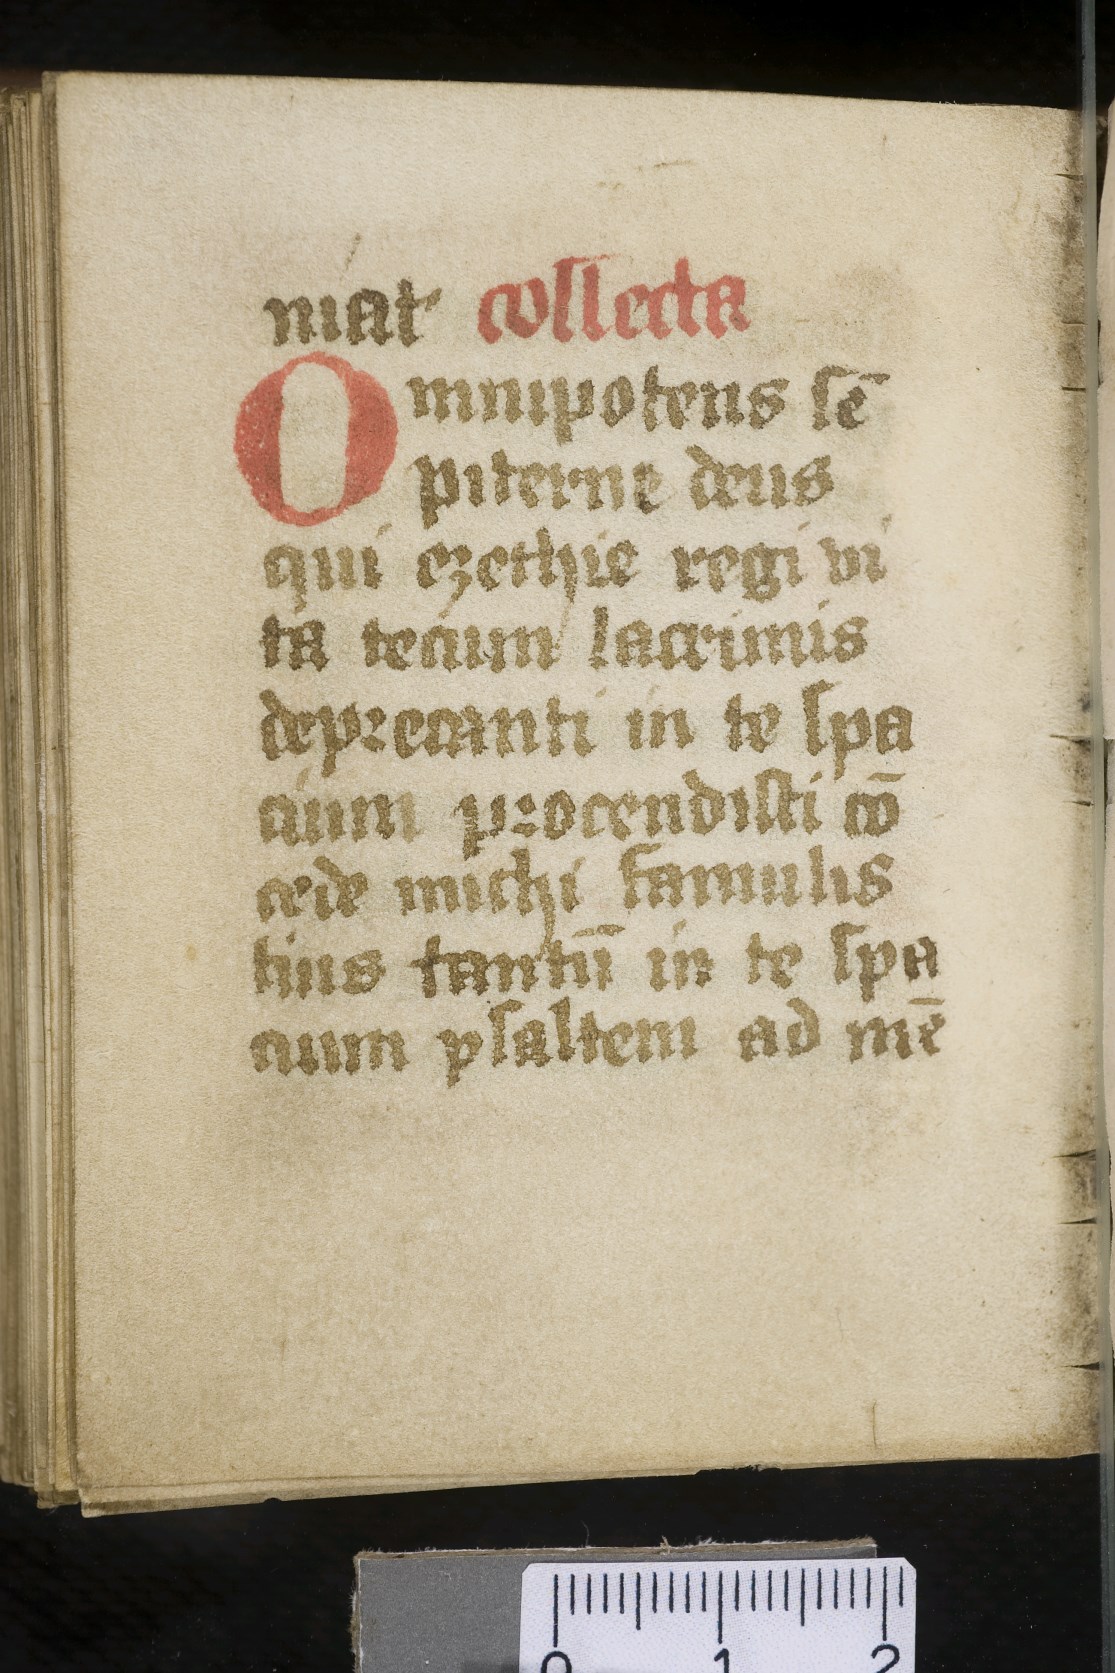 niat collecta
Omnipotens sē
piterne deus
qui ezethie regi vi
ta tecum lacrimis
deprecanti in te spa
cium procendisti cō
cede michi famulis
tuus tantū in te spa
cium psaltem ad mē
0 1 2